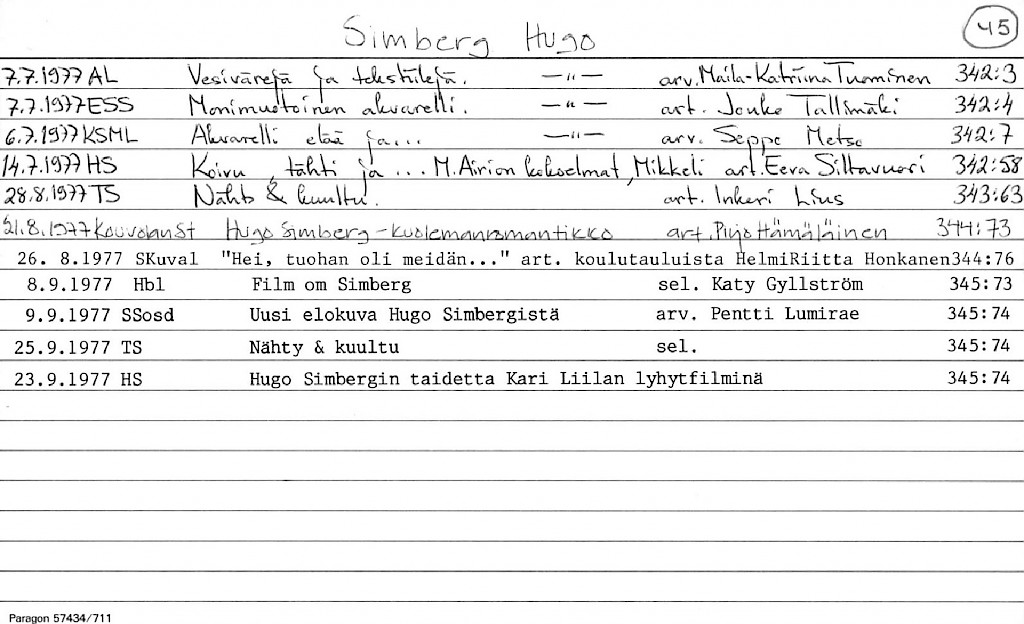 Simberg Hugo
45
7.7.1977 AL Vesivärejä ja tekstiilejä. —"— arv. Maila-Katriina Tuominen 342:3
7.7.1977 ESS Monimuotoinen akvarelli. —"— art. Jouko Tallimäki 342:4
6.7.1977 KSML Akvarelli elää ja... —"— arv. Seppo Metso 342:7
14.7.1977 HS Koivu, tähti ja ... M. Airion kokoelmat, Mikkeli art. Eeva Siltavuori 342:58
28.8.1977 TS Nähty & kuultu. art. Inkeri Lius 343:63
21.8.1977 KouvolanSt Hugo Simberg - kuolemanromantikko art. Pirjo Hämäläinen 344:73
26. 8.1977 SKuval "Hei, tuohan oli meidän..." art. koulutauluista HelmiRiitta Honkanen344:76
8.9.1977 Hbl Film om Simberg sel. Katy Gyllström 345:73
9.9.1977 SSosd Uusi elokuva Hugo Simbergistä arv. Pentti Lumirae 345:74
25.9.1977 TS Nähty & kuultu sel. 345:74
23.9.1977 HS Hugo Simbergin taidetta Kari Liilan lyhytfilminä 345:74
Paragon 57434/711